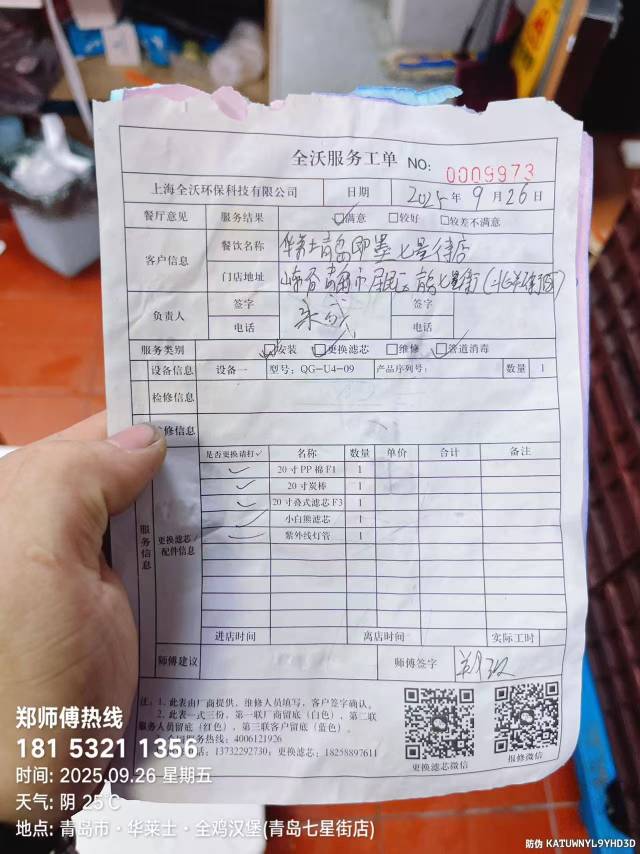 全沃服务工单 NO: 0009973
上海全沃环保科技有限公司 日期 2025年9月26日
餐厅意见 服务结果 满意 较好 较差不满意
客户信息 餐饮名称 华莱士青岛即墨七星街店
门店地址 山东省青岛市
负责人 签字 签字
电话 电话
服务类别 安装 更换滤芯 维修 管道消毒
设备信息 设备一 型号: QG-U4-09 产品序列号: 数量 1
检修信息
修信息
服务信息 更换滤芯配件信息 是否更换请打✓ 名称 数量 单价 合计 备注
✓ 20寸PP棉F1 1
✓ 20寸炭棒 1
✓ 20寸叠式滤芯F3 1
✓ 小白熊滤芯 1
✓ 紫外线灯管 1
进店时间 离店时间 实际工时
师傅建议 师傅签字
注: 1、此表由厂商提供, 维修人员填写, 客户签字确认。
2、此表一式三份, 第一联厂商留底(白色), 第二联
服务人员留底(红色), 第三联客户留底(蓝色)。
服务热线: 4006121926
话: 13732292730, 更换滤芯: 18258897611
更换滤芯微信 报修微信
郑师傅热线
181 5321 1356
时间: 2025.09.26 星期五
天气: 阴 25℃
地点: 青岛市·华莱士·全鸡汉堡(青岛七星街店)
防伪 KATUWNYL9YHD3D